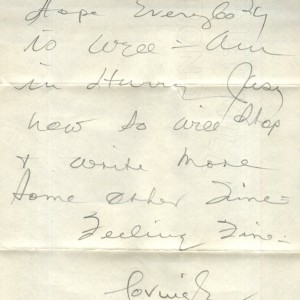 Hope Everybody
is well - am
in Hurry Just
now so will stop
& write more
some other Time -
Feeling Fine -
Loving